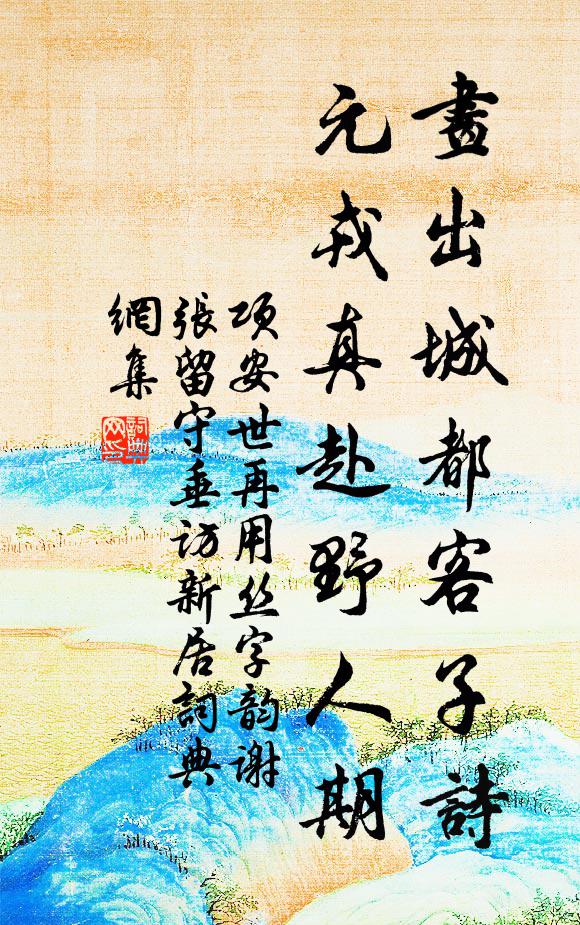 畫出城都客子詩
元戎真赴野人期
項安世再用丝字韵谢
張留守垂访新居詞典
網集
詞典網